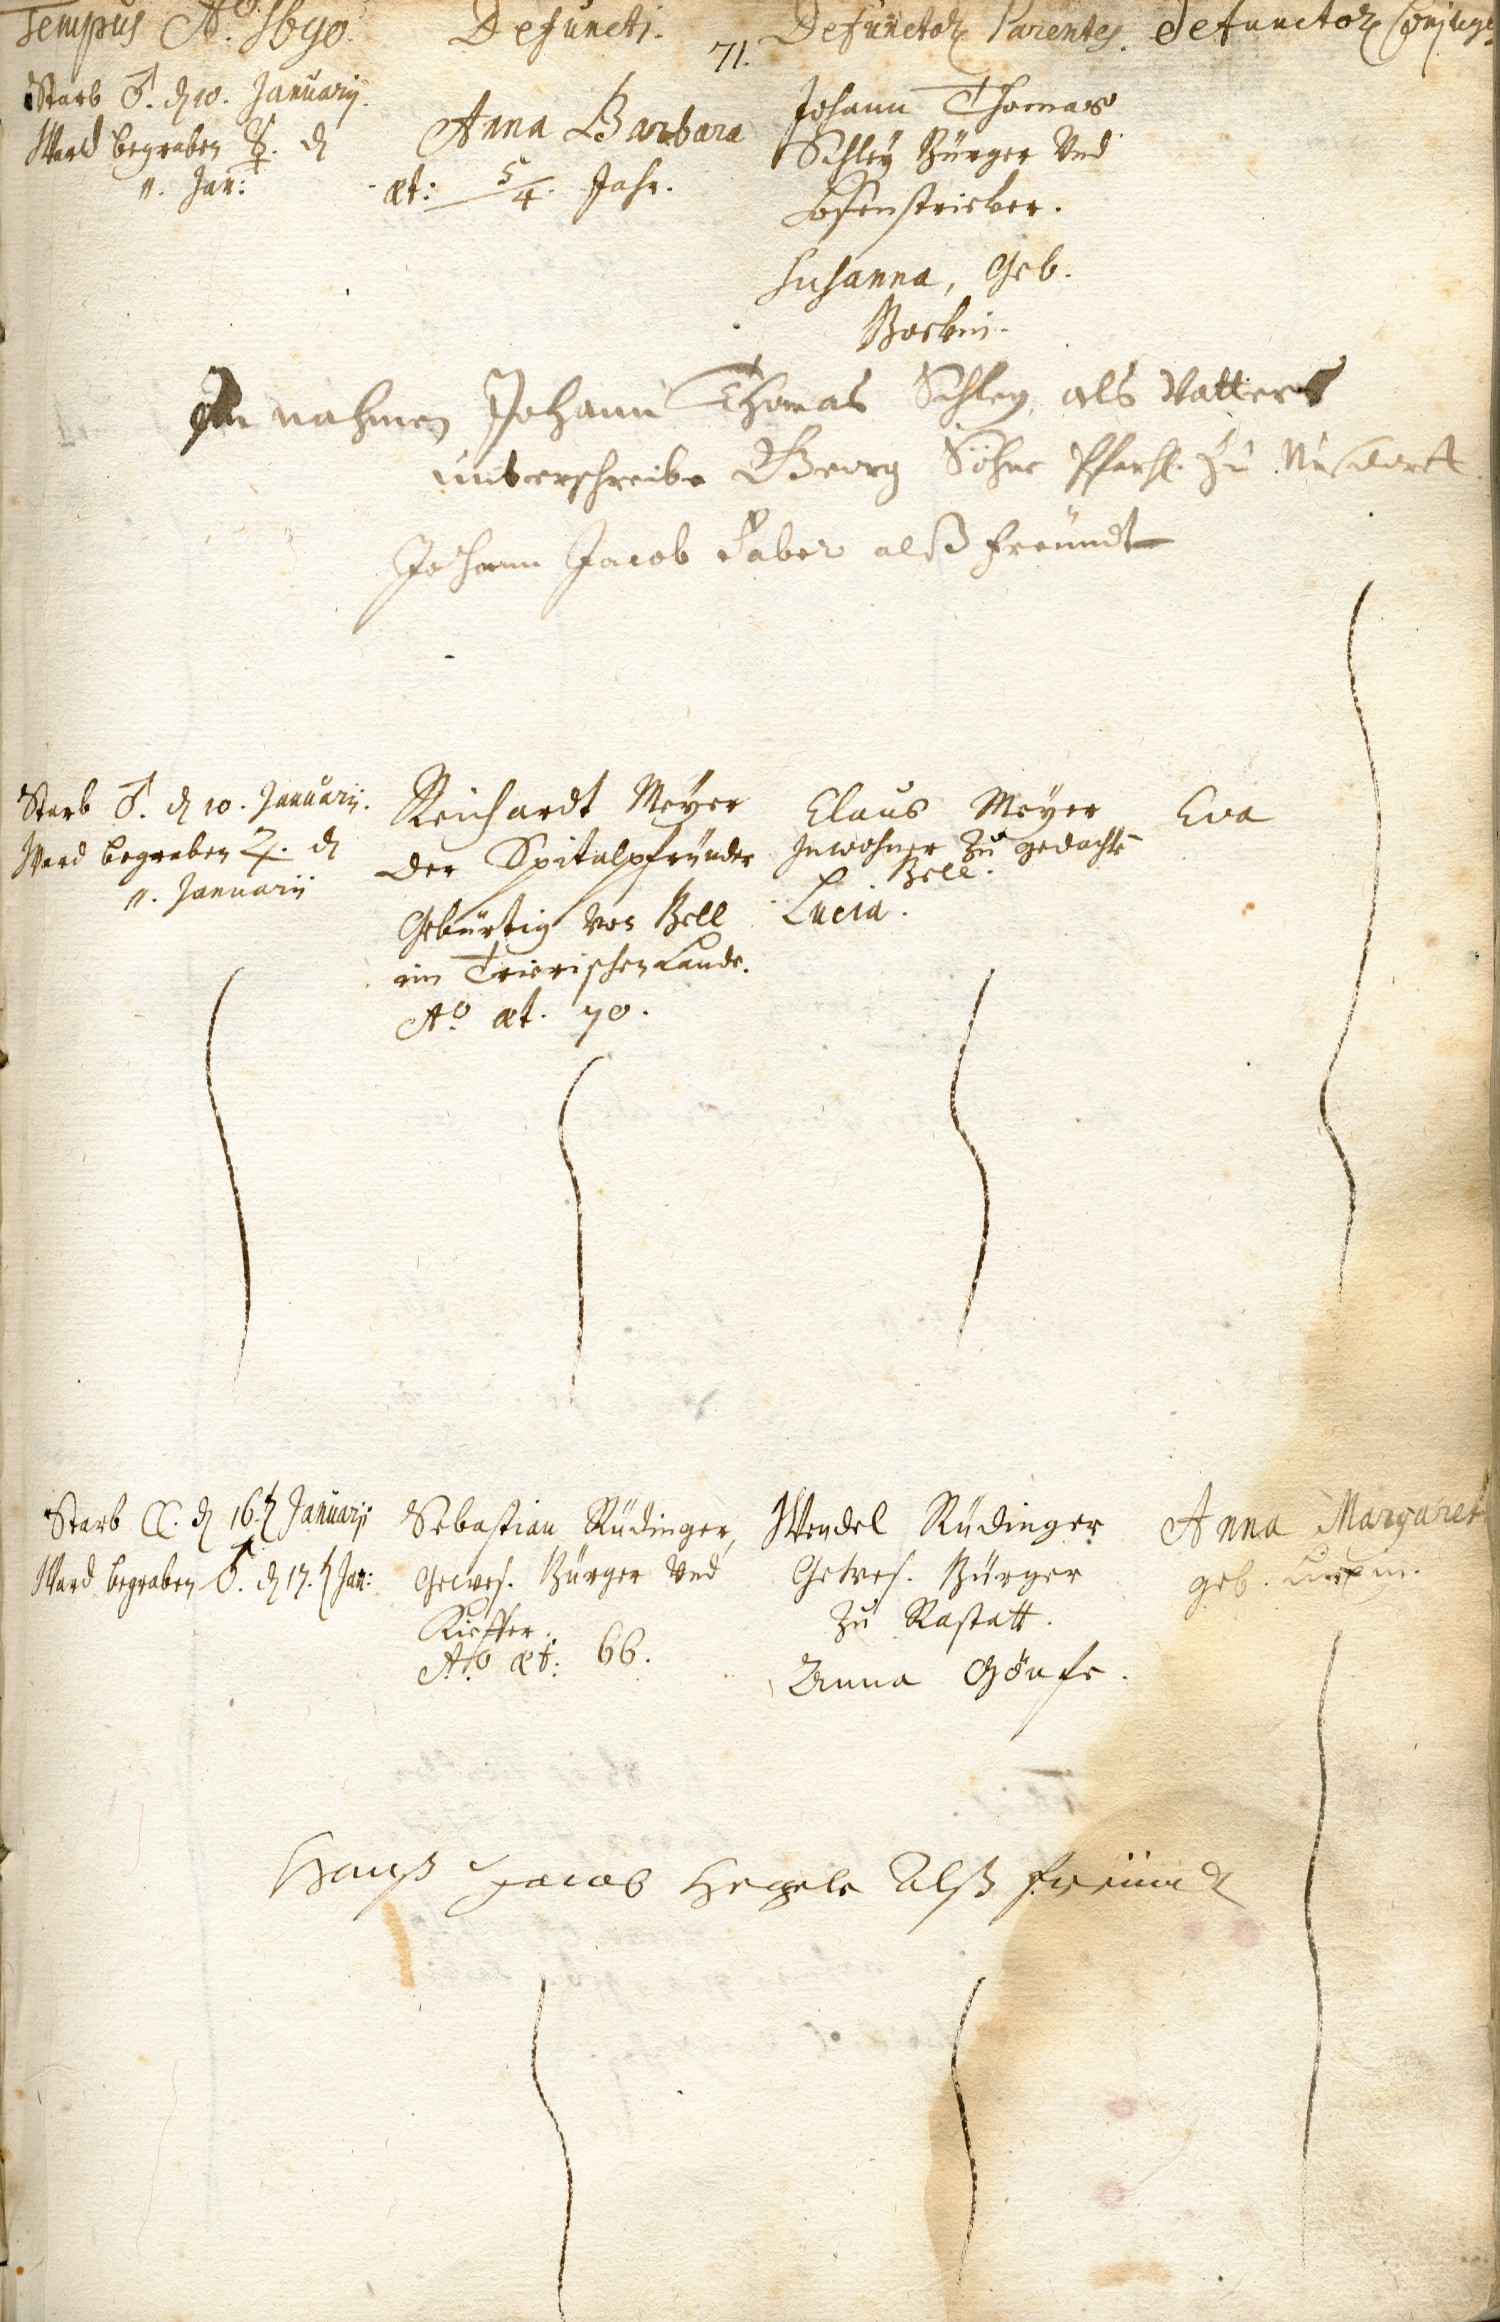 Tempus Aō. 1690. Defuncti. Defunctor. Parentes. Defunctor. Conjuges
71.
Starb ♂. d 10. Januarij.
Ward begraben ☿. d
11. Jan:
Anna Barbara
æt: 5/4. Jahr.
Johann Thomas
Schley Bürger Vnd
Hosenstricker.
Susanna, Geb.
Im nahmen Johann Thomas Schley, als Vatters
unterschreibe Georg Pfarh. zu Nusdorff
Johann Jacob Faber alß freündt
Starb ♂. d 10. Januarij.
Ward begraben ♃. d
11. Januarij
Reichardt Meyer
der Spitalpfründer
Gebürtig von Zell
im Trierischen Lande.
Aō æt. 70.
Claus Meyer
Inwohner zu gedachte
Zell.
Lucia.
Eva
Starb ☾. d 16. Januarij
Ward begraben ♂. d 17. Jan:
Sebastian Rüdinger,
Gewes. Bürger Vnd
Kieffer.
Aō æt: 66.
Wendel Rüdinger
Gewes. Bürger
zu Rastatt.
Anna
Anna Margaret
geb.
Hanß Jacob Hegele Alß freündt